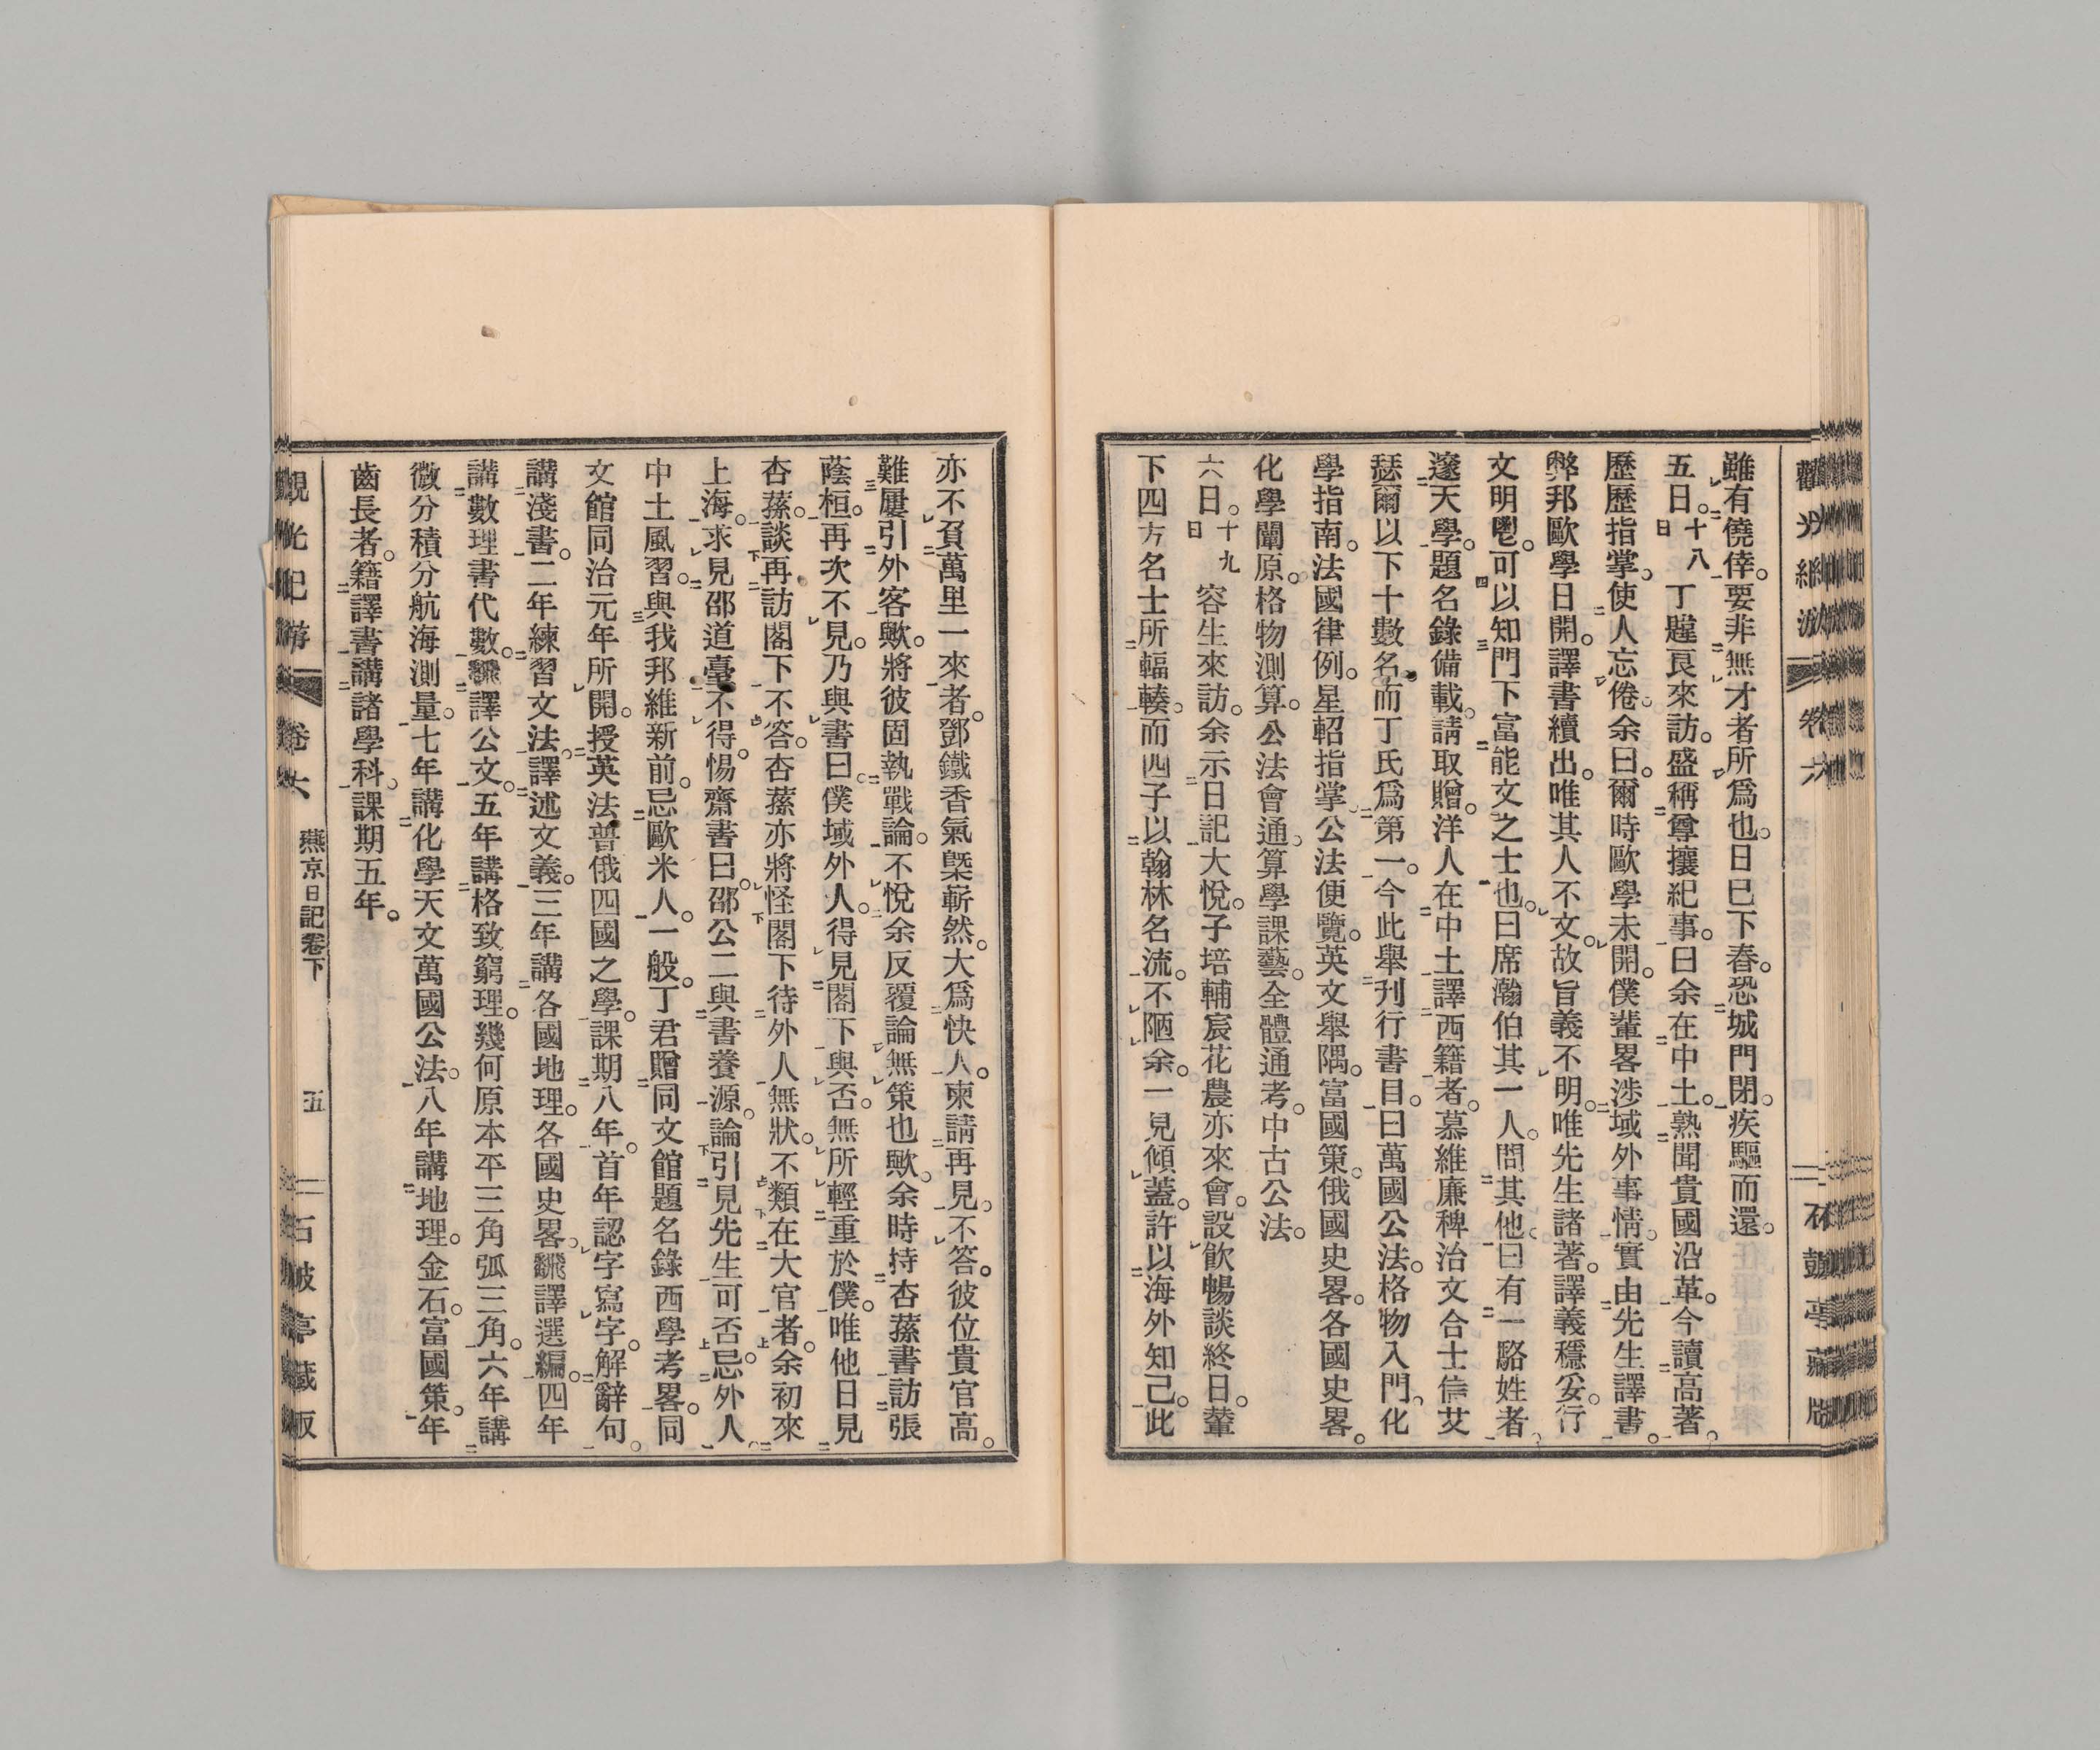 雖有僥倖。要非無才者所爲也。日已下舂。恐城門閉。疾驅而還。
五日。十八日丁韙良來訪。盛稱尊攘紀事。曰余在中土。熟聞貴國沿革。今讀高著。
歷歷指掌。使人忘倦。余曰。爾時歐學未開。僕輩畧涉域外事情。實由先生譯書。
弊邦歐學日開。譯書續出。唯其人不文。故旨義不明。唯先生諸著。譯義穩妥。行
文明鬯。可以知門下富能文之士也。曰席瀚伯其一人。問其他。曰有一駱姓者。
邃天學。題名錄備載。請取贈。洋人在中土譯西籍者。慕維廉稗治文合士信艾
瑟爾以下十數名。而丁氏爲第一。今此舉刊行書目。曰萬國公法。格物入門。化
學指南。法國律例。星軺指掌。公法便覽。英文舉隅。富國策。俄國史畧。各國史畧。
化學闡原。格物測算。公法會通。算學課藝。全體通考。中古公法。
六日。十九日容生來訪。余示日記大悅。子培輔宸花農亦來會。設飮暢談終日。輦
下四方名士所輻輳。而四子以翰林名流。不陋余。一見傾蓋。許以海外知己。此
亦不負萬里一來者。鄧鐵香氣槩嶄然。大爲快人。柬請再見。不答。彼位貴官高。
難屢引外客歟。將彼固執戰論。不悅余反覆論無策也歟。余時持杏蓀書訪張
蔭桓。再次不見。乃與書曰。僕域外人。得見閣下與否。無所輕重於僕。唯他日見
杏蓀。談再訪閣下不答。杏蓀亦將怪閣下待外人無狀。不類在大官者。余初來
上海。求見邵道臺不得。惕齋書曰。邵公二與書養源。論引見先生可否。忌外人。
中土風習。與我邦維新前。忌歐米人。一般。丁君贈同文館題名錄西學考畧。同
文館同治元年所開。授英法普俄四國之學。課期八年。首年認字寫字。解辭句。
講淺書。二年練習文法。譯述文義。三年講各國地理。各國史畧。飜譯選編。四年
講數理書代數。飜譯公文。五年講格致窮理。幾何原本平三角弧三角。六年講
微分積分航海測量。七年講化學天文萬國公法。八年講地理。金石。富國策。年
齒長者。籍譯書講諸學科。課期五年。
觀光紀游
卷六
燕京日記卷下
五
石鼓亭藏版